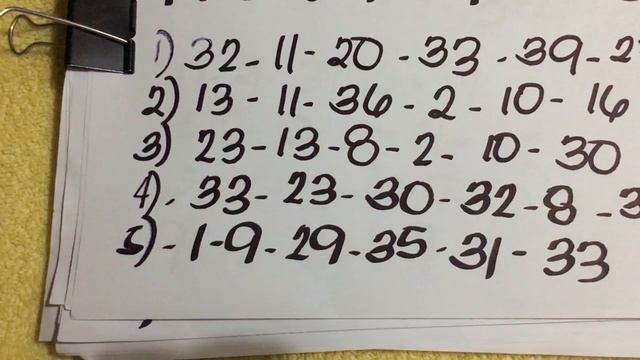 1) 32 - 11 - 20 - 33 - 39 - 2
2) 13 - 11 - 36 - 2 - 10 - 16
3) 23 - 13 - 8 - 2 - 10 - 30
4) - 33 - 23 - 30 - 32 - 8 - 3
5) - 1 - 9 - 29 - 35 - 31 - 33